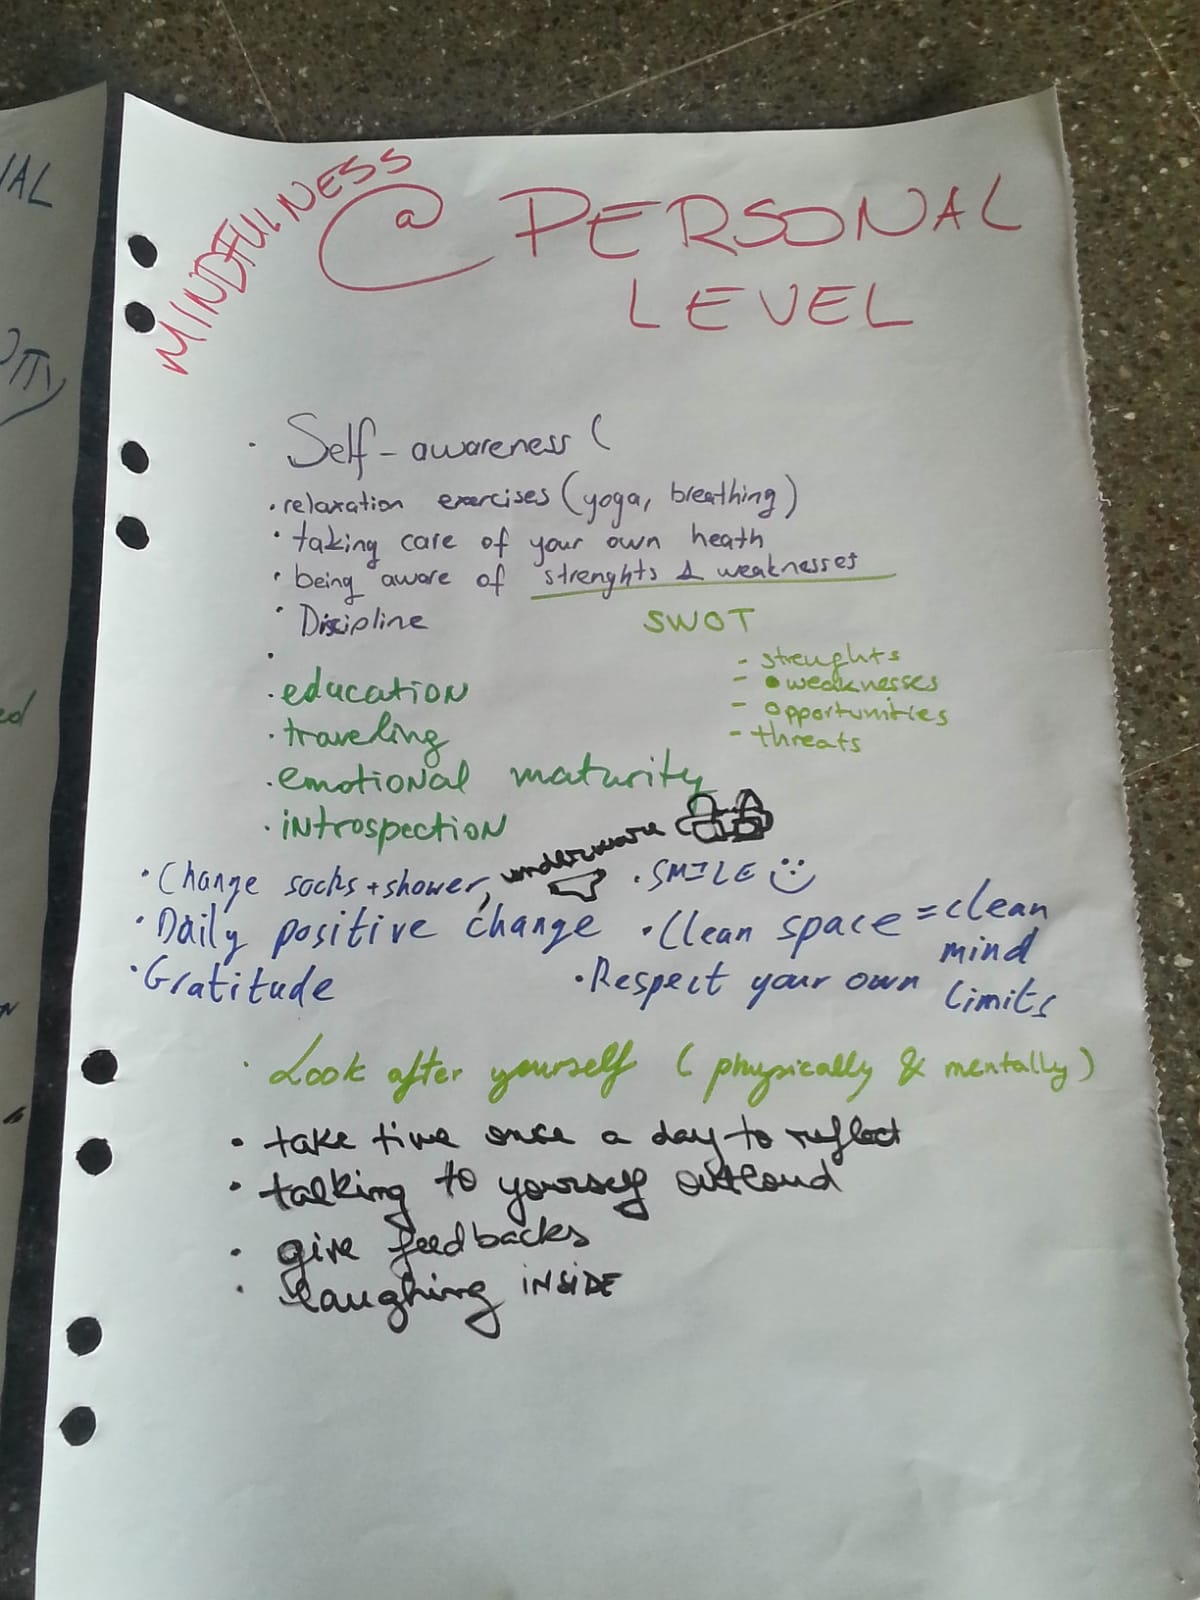 MINDFULNESS
@ PERSONAL
LEVEL
· Self-awareness (
· relaxation exercises (yoga, breathing)
· taking care of your own heath
· being aware of strenghts & weaknesses
· Discipline
SWOT
- strenghts
- weaknesses
- opportunities
- threats
·
· education
· traveling
· emotional maturity
· introspection
· Change socks + shower, underware
· SMILE
· Daily positive change
· Clean space = clean
mind
· Gratitude
· Respect your own limits
· Look after yourself (physically & mentally)
· take time once a day to reflect
· talking to yourself outloud
· give feedbacks
· laughing INSIDE